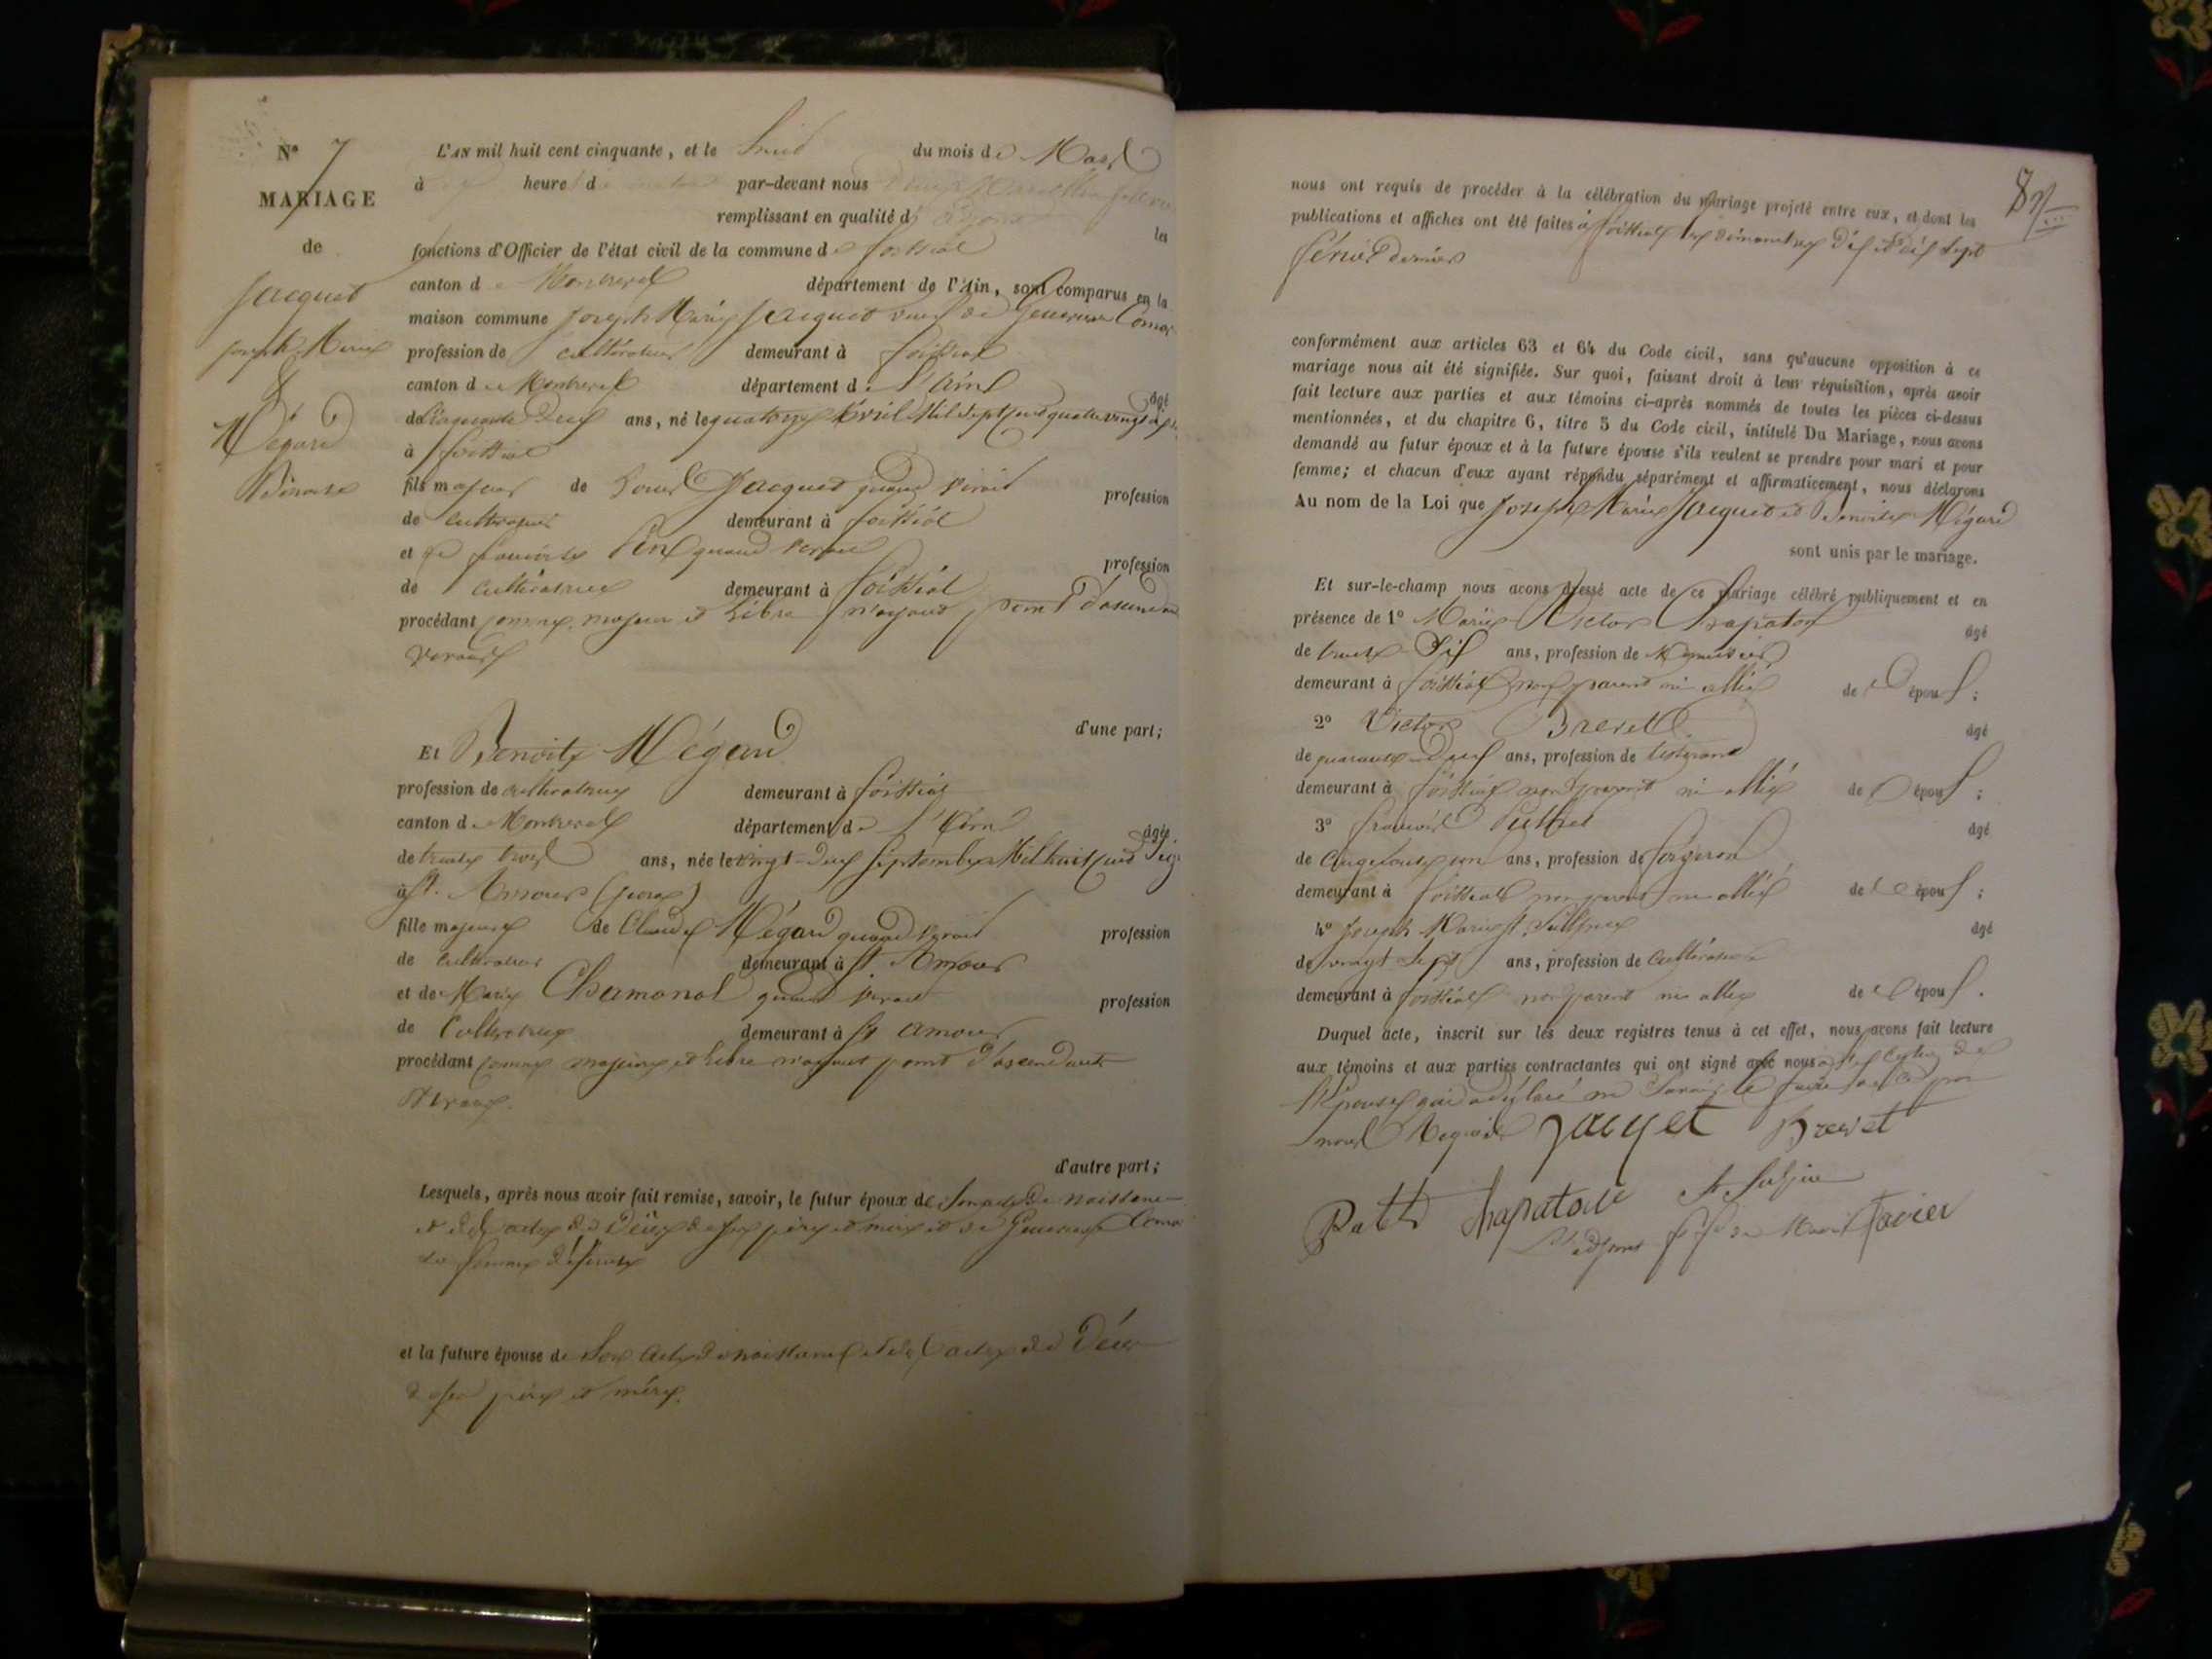 N° 7
MARIAGE
de
Jacquet
Joseph Marie
&
Mégard
Benoite
L'AN mil huit cent cinquante, et le huit du mois de Mars
à heure d par-devant nous
remplissant en qualité d les
fonctions d'Officier de l'état civil de la commune de foissiat
canton de Montrevel département de l'Ain, sont comparus en la
maison commune Joseph Marie Jacquet veuf de
profession de cultivateur demeurant à foissiat
canton de Montrevel département de l'ain âgé
de Cinquante Deux ans, né le quatorze avril Mil sept cent quatre vingt
à foissiat
fils majeur de Louis Jacquet quand vivait profession
de cultivateur demeurant à foissiat
et de quand vivait profession
de cultivatrice demeurant à foissiat
procédant comme majeur et libre n'ayant point d'ascendant
vivants
d'une part;
Et Benoite Mégard
profession de cultivatrice demeurant à foissiat
canton de Montrevel département de l'Ain âgée
de trente trois ans, née le vingt Deux Septembre Mil huit cent
à St. Amour (jura)
fille majeure de Claude Mégard quand vivait profession
de cultivateur demeurant à St Amour
et de Marie Chamonal quand vivait profession
de Cultivatrice demeurant à St amour
procédant comme majeure et libre n'ayant point d'ascendants
vivants.
d'autre part;
Lesquels, après nous avoir fait remise, savoir, le futur époux de Son acte de naissance
et des actes de Décès de ses père et mère et de
sa femme défunte
et la future épouse de Son acte de naissance et des actes de Décès
de ses père et mère.
nous ont requis de procéder à la célébration du mariage projeté entre eux, et dont les
publications et affiches ont été faites à foissiat les dimanches dix et dix sept
février dernier
conformément aux articles 63 et 64 du Code civil, sans qu'aucune opposition à ce
mariage nous ait été signifiée. Sur quoi, faisant droit à leur réquisition, après avoir
fait lecture aux parties et aux témoins ci-après nommés de toutes les pièces ci-dessus
mentionnées, et du chapitre 6, titre 5 du Code civil, intitulé Du Mariage, nous avons
demandé au futur époux et à la future épouse s'ils veulent se prendre pour mari et pour
femme; et chacun d'eux ayant répondu séparément et affirmativement, nous déclarons
Au nom de la Loi que Joseph Marie Jacquet et Benoite Mégard
sont unis par le mariage.
Et sur-le-champ nous avons dressé acte de ce Mariage célébré publiquement et en
présence de 1° Marie Victor Chapatou âgé
de trente Six ans, profession de Menuisier
demeurant à foissiat non parent ni allié de époux;
2° Victor Brevet âgé
de quarante Deux ans, profession de tisserand
demeurant à foissiat non parent ni allié de époux;
3° françois âgé
de Cinquante un ans, profession de forgeron
demeurant à foissiat non parent ni allié de époux;
4° Joseph Marie St. Sulpice âgé
de vingt Sept ans, profession de Cultivateur
demeurant à foissiat non parent ni allié de époux.
Duquel acte, inscrit sur les deux registres tenus à cet effet, nous avons fait lecture
aux témoins et aux parties contractantes qui ont signé avec nous
l'épouse qui a déclaré ne savoir le faire de ce par
nous Requise Jacquet Brevet
Chapatou St Sulpice